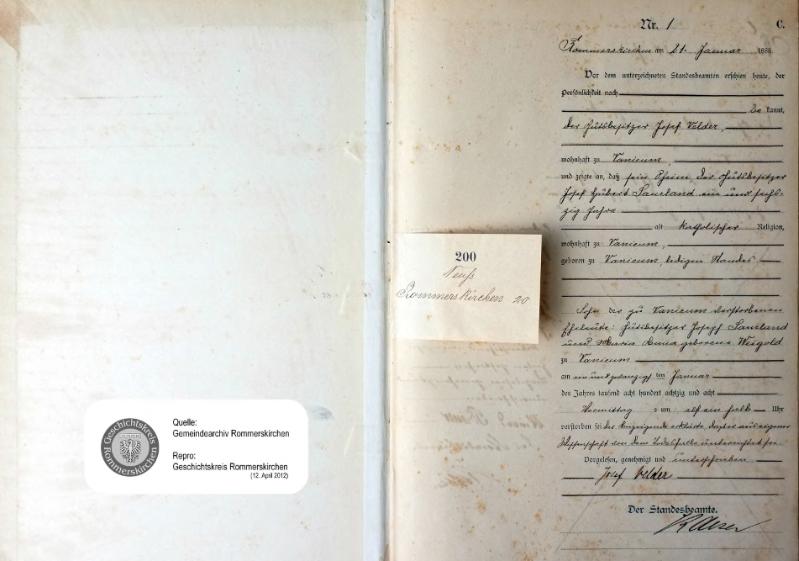 Quelle:
Gemeindearchiv Rommerskirchen
Repro:
Geschichtskreis Rommerskirchen
(12. April 2012)
Geschichtskreis
Rommerskirchen
200
Neuß
Rommerskirchen 20
Nr. 1
C.
Rommerskirchen am 21. Januar 188
Vor dem unterzeichneten Standesbeamten erschien heute, der
Persönlichkeit nach
be kannt,
der Gutsbesitzer Josef Velder,
wohnhaft zu Vanicum,
und zeigte an, daß sein Oheim der Gutsbesitzer
Josef Hubert Sauland ein und sech-
zig Jahre
alt katholischer Religion,
wohnhaft zu Vanicum,
geboren zu Vanicum, ledigen Standes
Sohn der zu Vanicum verstorbenen
Eheleute: Gutsbesitzer Joseph Sauland
und Maria Anna geborene Weigold
zu Vanicum
am ein und zwanzigsten Januar
des Jahres tausend acht hundert achtzig und acht
Vormittag s um elf ein halb Uhr
verstorben sei der Anzeigende erklärte, daß er aus eigener
Wissenschaft von dem Todesfalle unterrichtet sei
Vorgelesen, genehmigt und unterschrieben
Josef Velder
Der Standesbeamte.